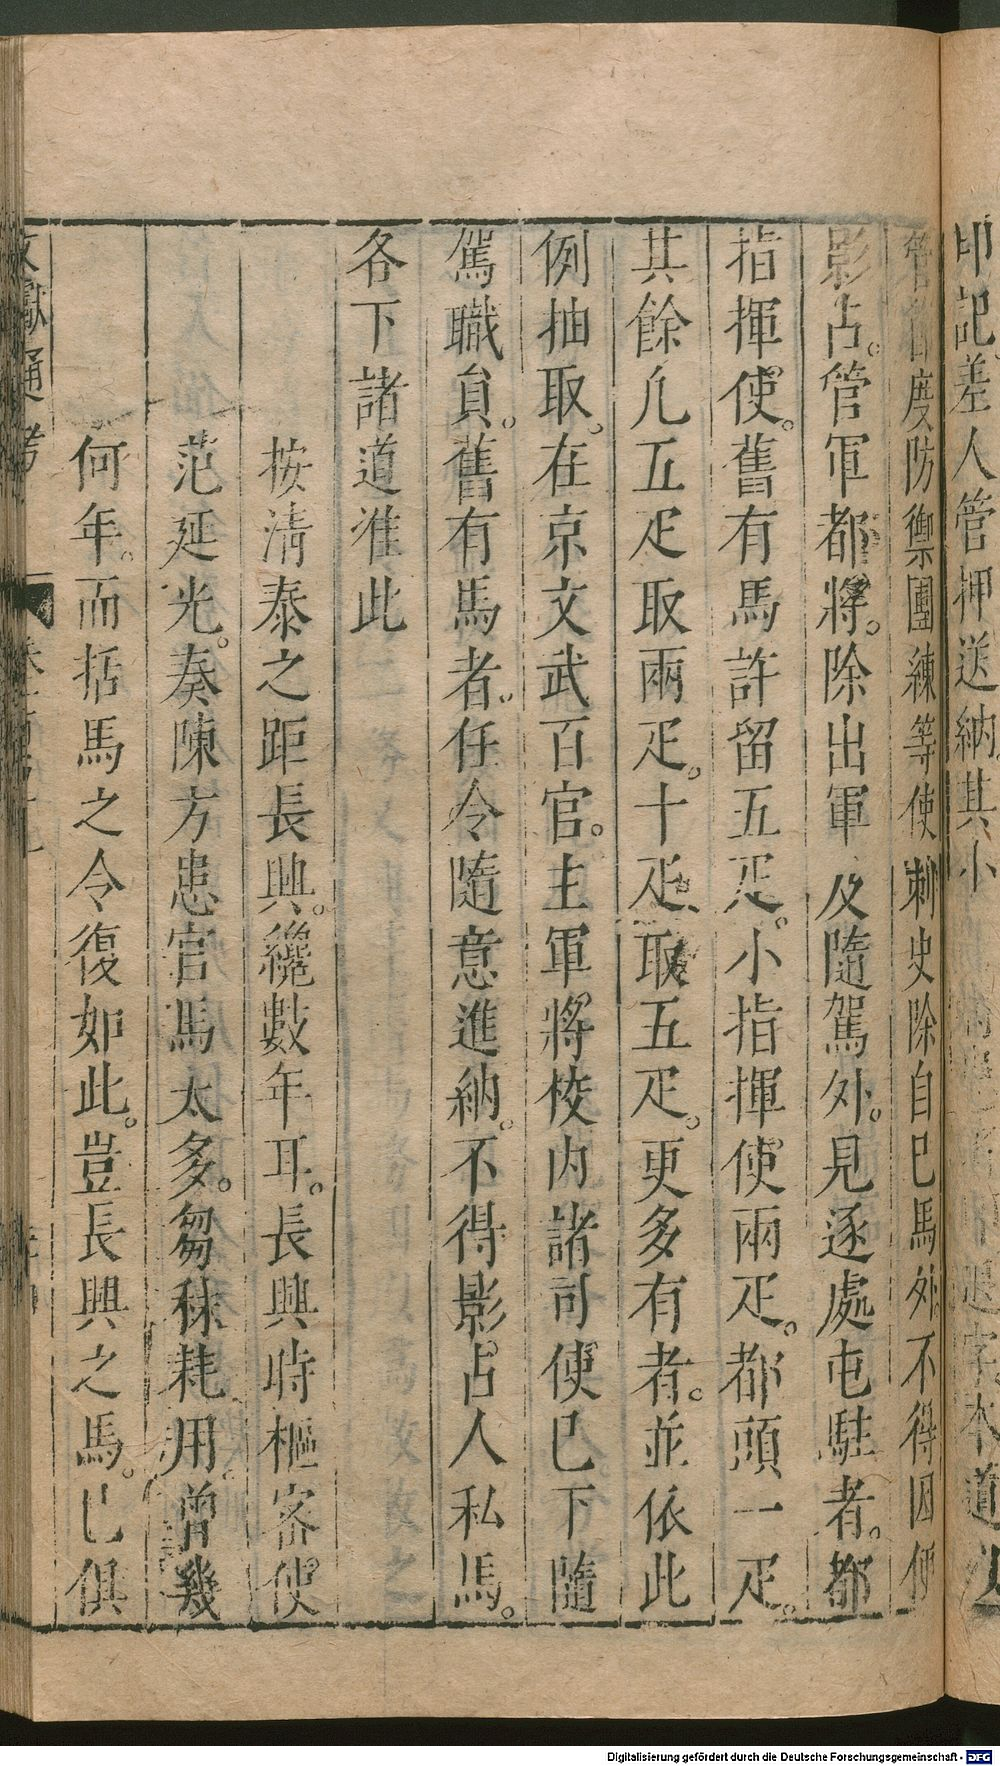 印記差人管押送納。其小
管
度防禦團練等使刺史除自已馬外。不得因便
影占。管軍都將。除出軍及隨駕外。見逐處屯駐者。都
指揮使。舊有馬許留五疋。小指揮使兩疋。都頭一疋。
其餘凢五疋取兩疋。十疋取五疋。更多有者。並依此
例抽取。在京文武百官。主軍將校内諸司使已下隨
駕職貟。舊有馬者。任令隨意進納。不得影占人私馬。
各下諸道准此
按清泰之距長興。纔數年耳。長興時樞密使
范延光。奏陳方患官馬太多。芻秣耗用。曾幾
何年。而括馬之令復如此。豈長興之馬。已俱
文獻通考
Digitalisierung gefördert durch die Deutsche Forschungsgemeinschaft - DFG